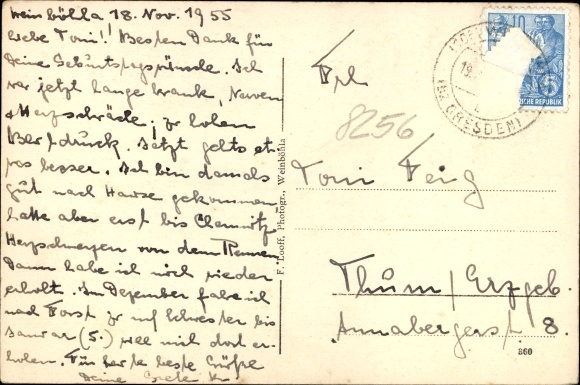 Weinböhla 18. Nov. 1955
Liebe Toni! Besten Dank für
Deine Geburtstagswünsche. Ich
war jetzt lange krank, Nerven
& Herzschwäche, zu hohen
Blutdruck. Jetzt geht's et-
was besser. Ich bin damals
gut nach Hause gekommen
hatte aber erst bis Chemnitz
Herzschmerzen von dem Rennen
Dann habe ich mich wieder
erholt. Im Dezember fahre ich
nach Forst zu m/ Schwester bis
Januar (5.) will mich dort er-
holen. Für heute beste Grüße
Deine Grete
F. Looff, Photogr., Weinböhla
10
5
DEUTSCHE REPUBLIK
(Bz. DRESDEN)
Frl
8256
Toni Feig
Thum / Erzgeb.
Annabergerst 8.
860